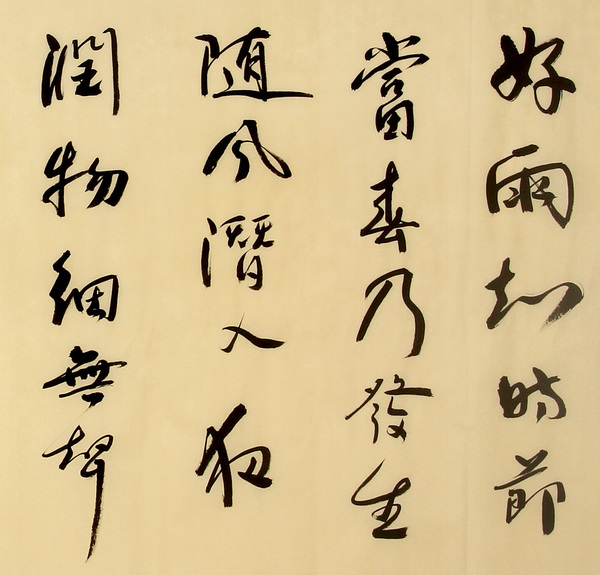 好雨知時節
當春乃發生
随風潛入夜
潤物細無聲